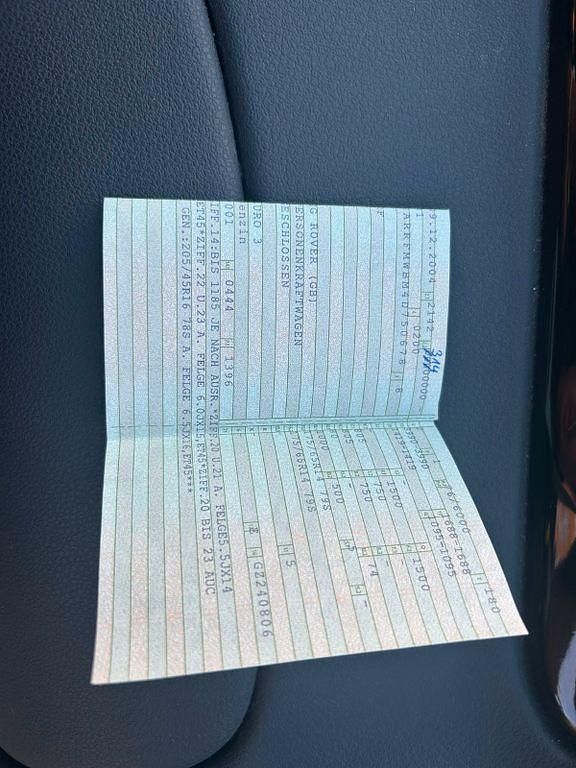 9.12.2004 2142 00000
314
1 0200
ARRFMWBM4D750678 8
G ROVER (GB)
ERSONENKRAFTWAGEN
ESCHLOSSEN
URO 3
enzin
001 0444 1396
IFF.14:BIS 1185 JE NACH AUSR.*ZIFF.20 U.21 A. FELGE5.5JX14
ET45*ZIFF.22 U.23 A. FELGE 6.0JX15,ET45*ZIFF.20 BIS 23 AUC
GEN.:205/45R16 78S A. FELGE 6.5JX16,ET45***
76/6000 180
3990-3990 1688-1688
1419-1419 1095-1095
- 1500 1500
750 -
05 750 74 -
05 - 5
000 500
75/65R14 79S
75/65R14 79S 5
- E GZ240806